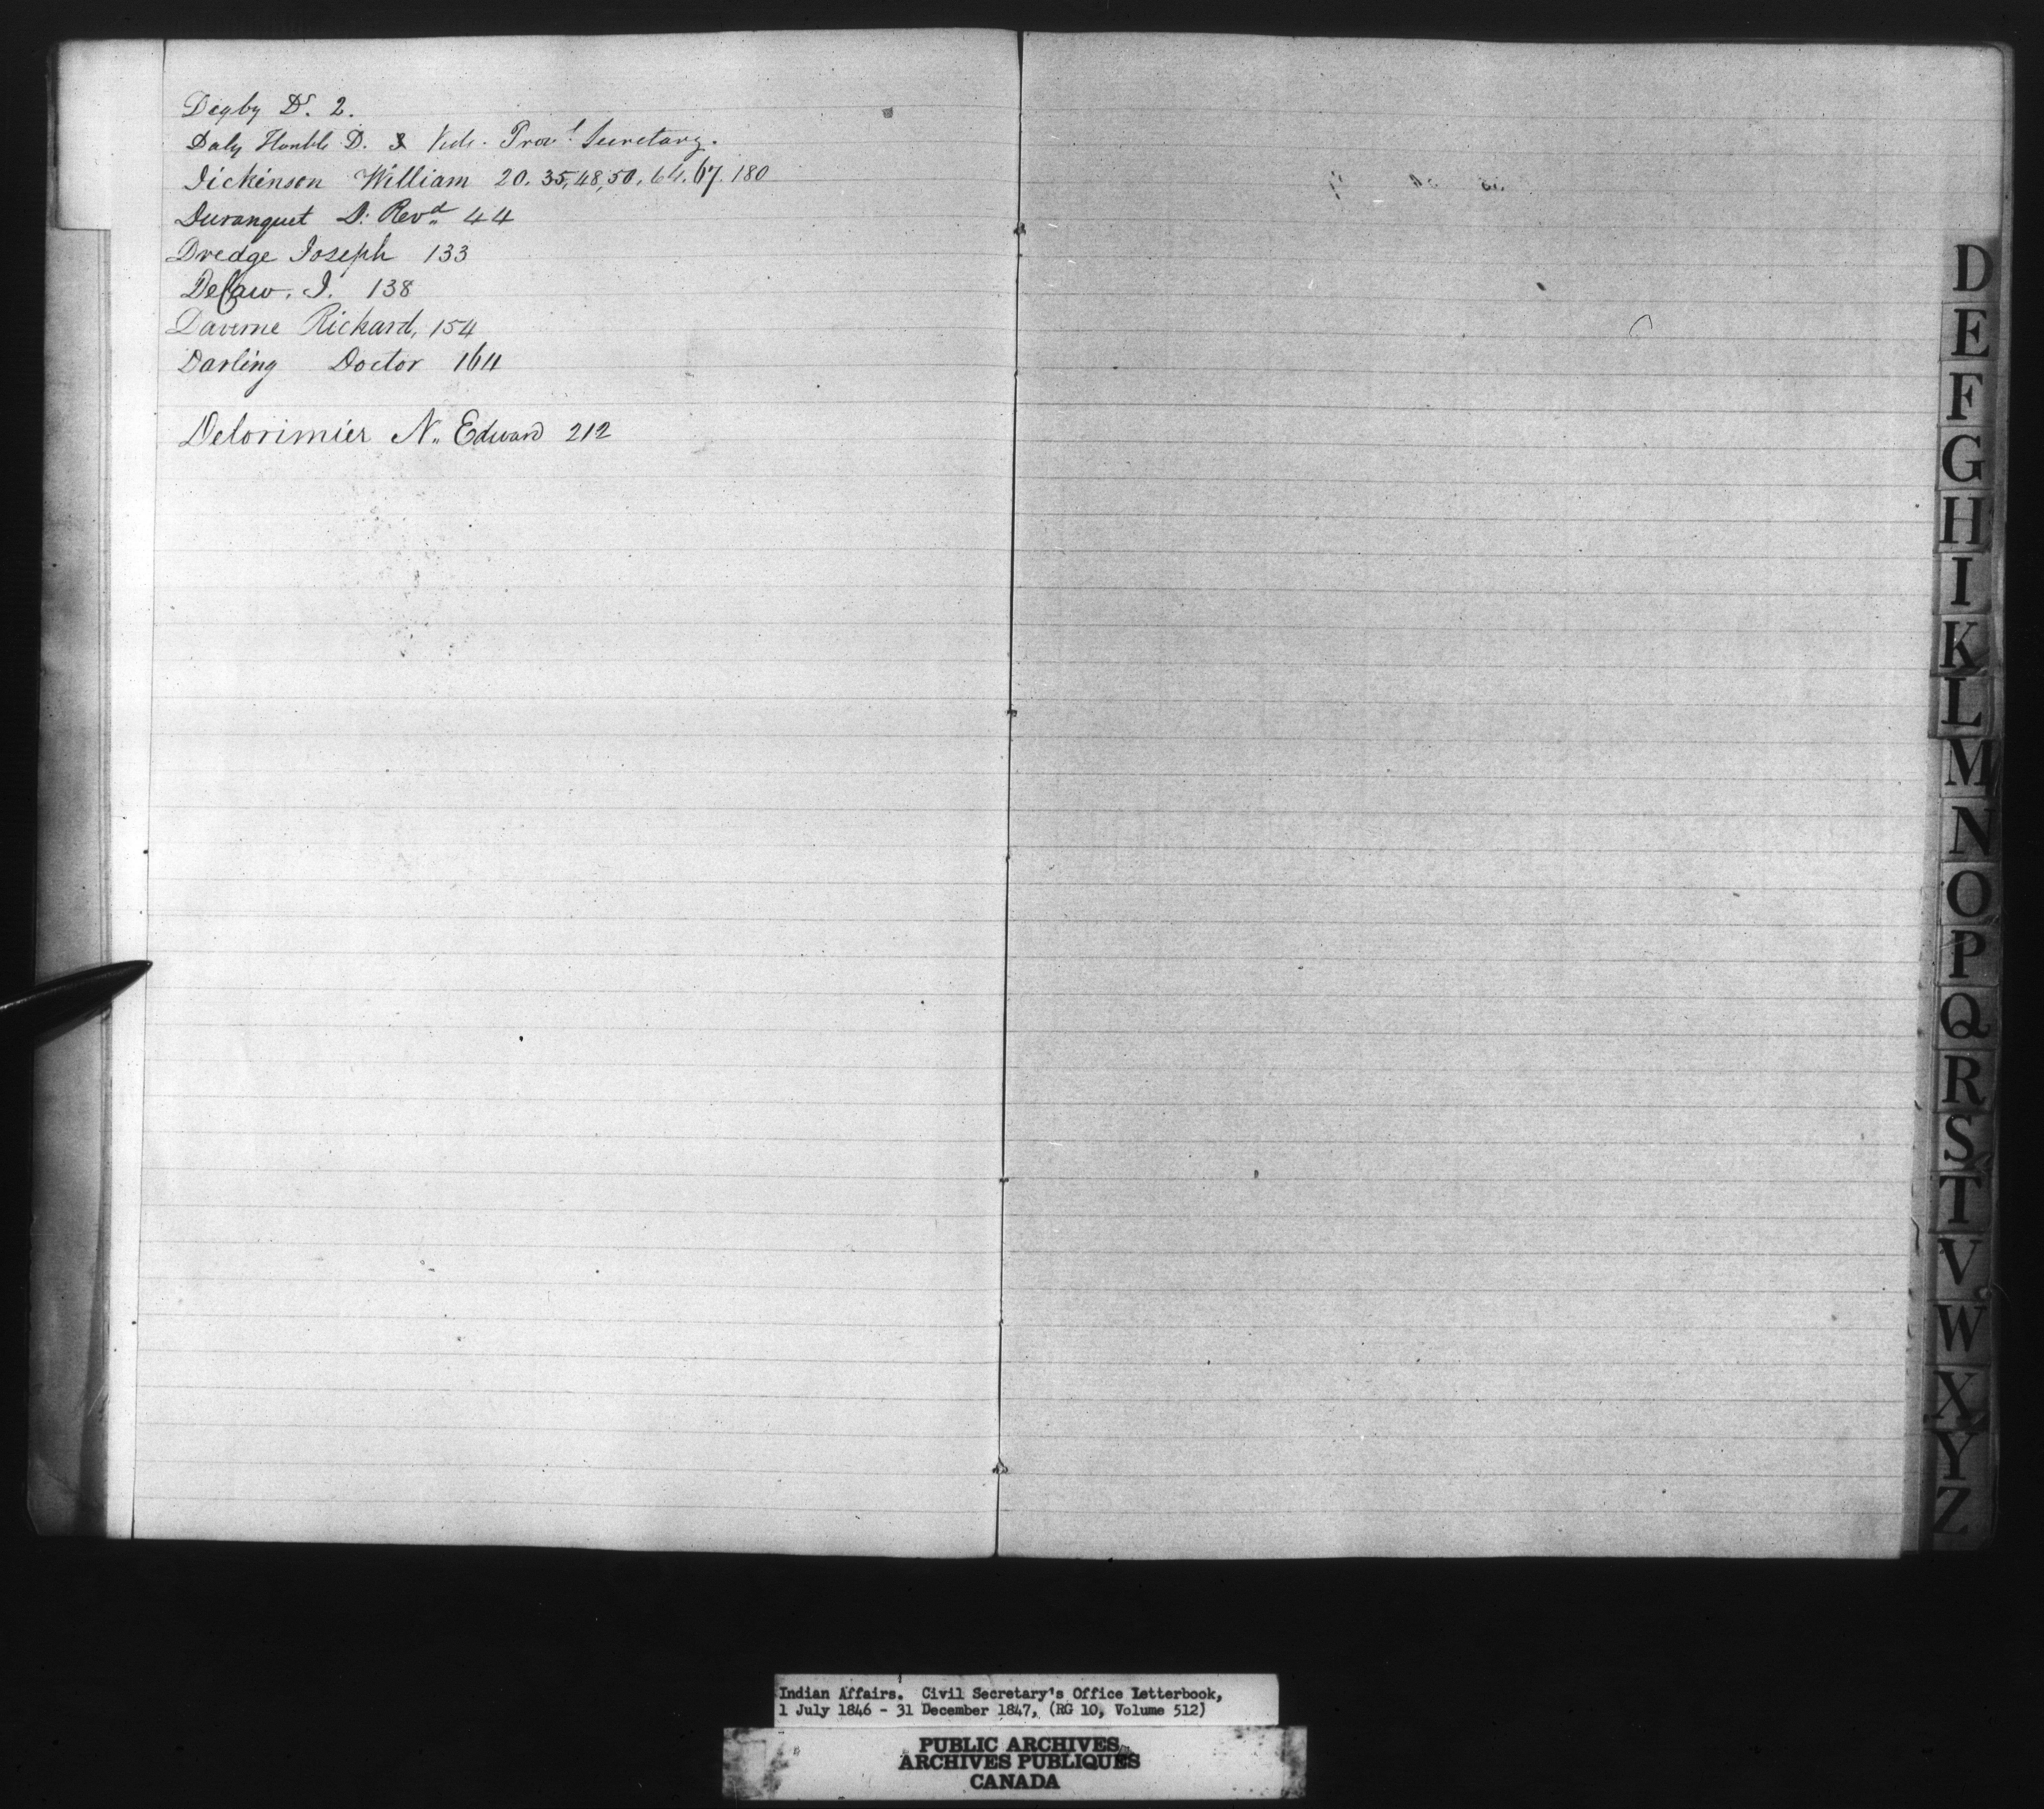 Digby Dr. 2.
Daly Honble D. & Vide. Provl Secretary.
Dickinson William 20. 35, 48, 50, 64. 67. 180
Duranquet D. Revd 44
Dredge Joseph 133
DeCaw. J. 138
Daverne Richard, 154
Darling Doctor 164
Delorimier N. Edward 212
D
E
F
G
H
I
K
L
M
N
O
P
Q
R
S
T
V
W
X
Y
Z
Indian Affairs. Civil Secretary's Office Letterbook,
1 July 1846 - 31 December 1847, (RG 10, Volume 512)
PUBLIC ARCHIVES
ARCHIVES PUBLIQUES
CANADA